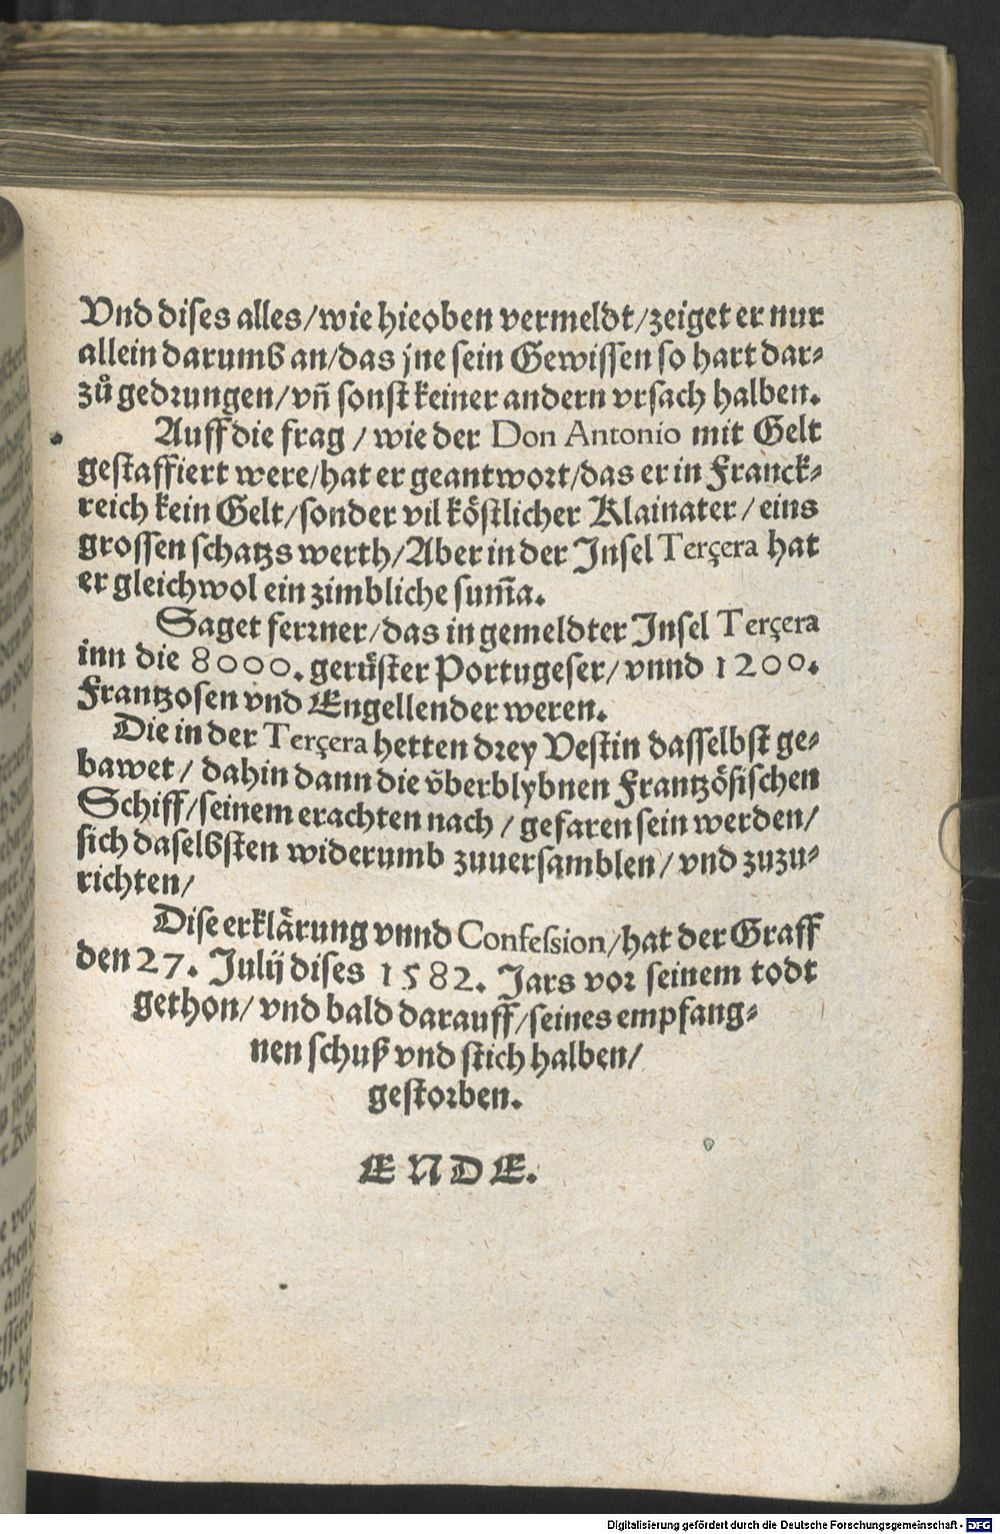 Vnd dises alles/wie hieoben vermeldt/zeiget er nur
allein darumb an/das jne sein Gewissen so hart dar-
zů gedrungen/vñ sonst keiner andern vrsach halben.
Auff die frag / wie der Don Antonio mit Gelt
gestaffiert were/hat er geantwort/das er in Franck-
reich kein Gelt/sonder vil köstlicher Klainater / eins
grossen schatzs werth/Aber in der Jnsel Terçera hat
er gleichwol ein zimbliche sum̃a.
Saget ferrner/das in gemeldter Jnsel Terçera
inn die 8000. gerüster Portugeser/ vnnd 1200.
Frantzosen vnd Engellender weren.
Die in der Terçera hetten drey Vestin dasselbst ge-
bawet / dahin dann die v̈berblybnen Frantzösischen
Schiff/seinem erachten nach / gefaren sein werden/
sich daselbsten widerumb zuuersamblen/ vnd zuzu-
richten/
Dise erklärung vnnd Confession/hat der Graff
den 27. Julij dises 1582. Jars vor seinem todt
gethon/ vnd bald darauff/seines empfang-
nen schuß vnd stich halben/
gestorben.
ENDE.
Digitalisierung gefördert durch die Deutsche Forschungsgemeinschaft - DFG